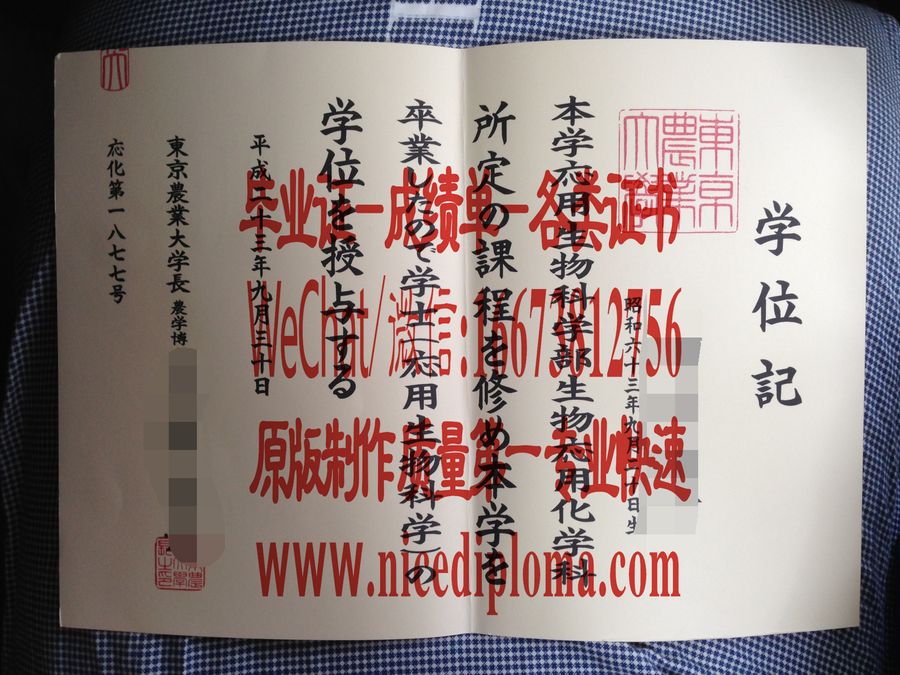 学位記
東京
農業
大學
昭和六十三年九月二十日生
本学応用生物科学部生物応用化学科
所定の課程を修め本学を
卒業したので学士(応用生物科学)の
学位を授与する
平成二十三年九月三十日
東京農業大学長 農学博
応化第一八七七号
毕业证—成绩单—各类证书
WeChat/微信:16673812756
原版制作 质量第一 专业快速
www.nicediploma.com